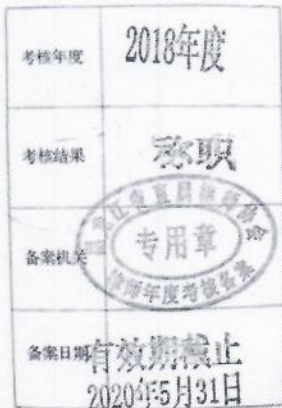 考核年度
2018年度
考核结果
称职
备案机关
江省直属律师协会
专用章
律师年度考核备案
备案日期
有效期截止
2020年5月31日